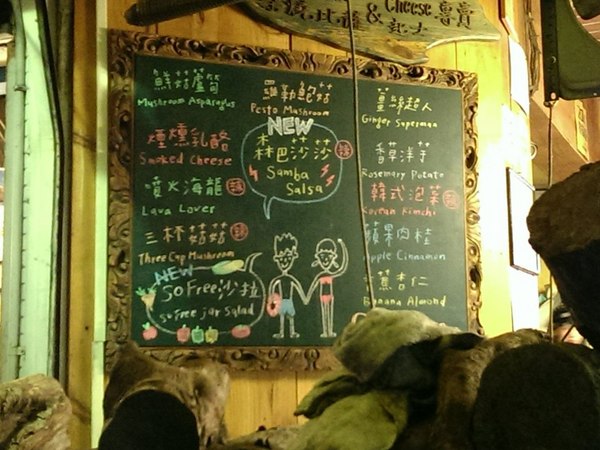 Cheese 專賣
&
鮮菇蘆筍
Mushroom Asparagus
煙燻乳酪
Smoked Cheese
噴火海龍 辣
Lava Lover
三杯菇菇 辣
Three Cup Mushroom
NEW
SoFree沙拉
So Free jar Salad
羅勒鮑菇
Pesto Mushroom
NEW
森巴莎莎 辣
Samba
Salsa
薑緣超人
Ginger Superman
香草洋芋
Rosemary Potato
韓式泡菜 辣
Korean Kimchi
蘋果肉桂
Apple Cinnamon
蕉杏仁
Banana Almond